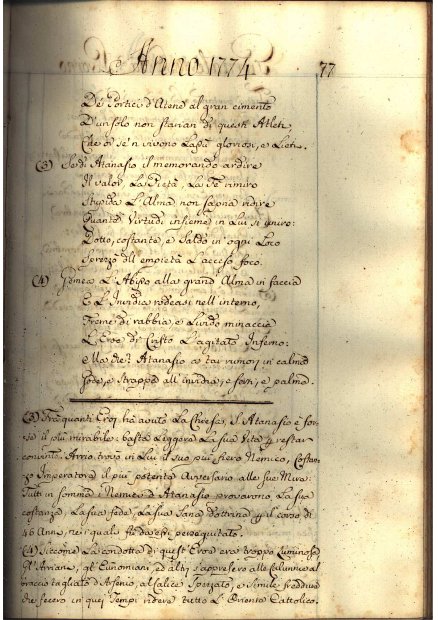 Anno 1774
77
De' Portici d'Atene al gran cimento
D'un solo non starian di questi Atleti,
Che or se'n vivono Lassù gloriosi, e Lieti.
(3) Se di Atanasio il memorando ardire
Il valor, La Pietà, La Fe rimiro
Stupida L'Alma non sapria ridire
Quante Virtudi insieme in Lui si uniro:
Dotto, costante, e Saldo in ogni Loco
Sprezzò dell'empietà L'acceso foco.
(4) Gemea L'Abisso alla grand'Alma in faccia
E L'Invidia rodeasi nell'interno,
Freme di rabbia, e Livido minaccia
L'Eroe di Cristo L'agitato Inferno:
Ma de' Atanasio a tai rumori in calma
Gode, e strappa all'invidia, e forse, e palma.
(3) Fra quanti Eroi ha avuto La Chiesa, S. Atanasio è for-
se il più mirabile: basta Leggere La sua Vita per restar
convinto. Arrio trovò in Lui il suo più fiero Nemico, Costan-
zo Imperatore il più potente Avversario alle sue Mire:
Tutti in somma i Nemici d'Atanasio provarono La sua
costanza, La sua fede, La sua Sana Dottrina per il corso di
46 Anni, nei quali fu da essi perseguitato.
(4) Siccome La condotta di quest'Eroe era troppo Luminosa
Gl'Arriani, gl'Eunomiani, ed altri s'appresero alle Calunnie del
braccio tagliato d'Arsenio, al Calice Spezzato, e Simile freddure
che fecero in quei Tempi ridere tutto L'Oriente Cattolico.